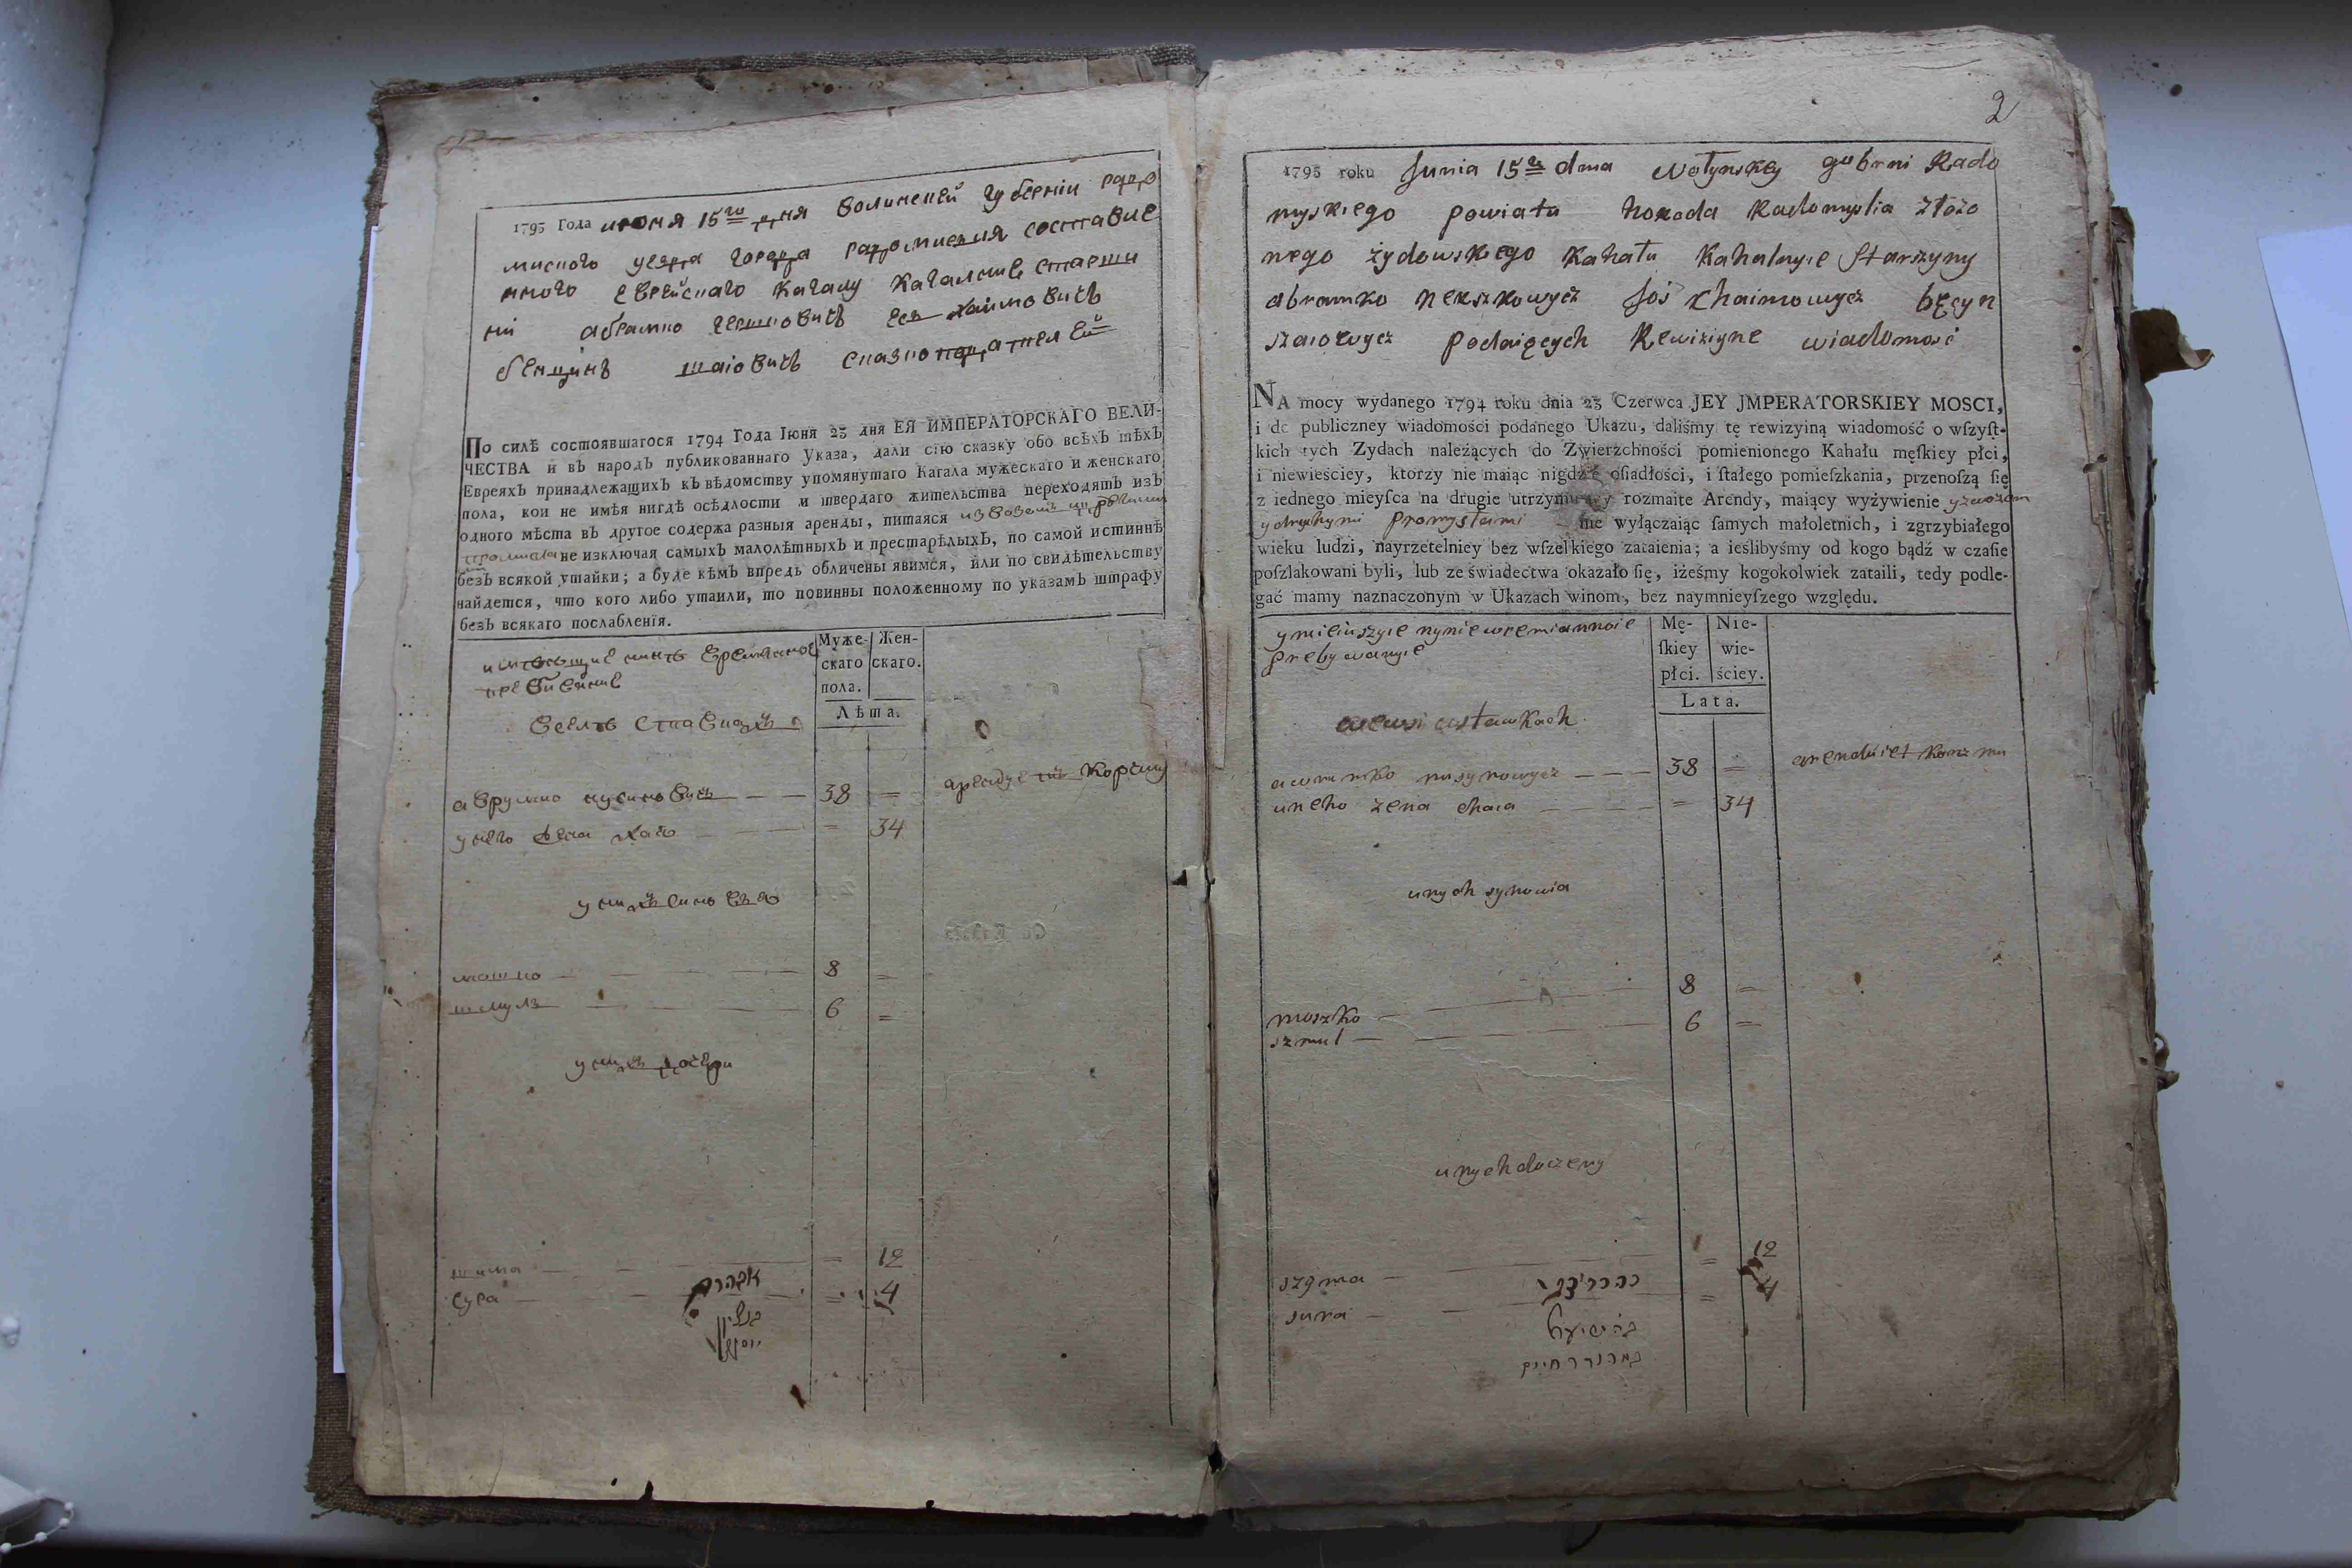 1795 Года июня 15го дня волинской губернии радо
мисного уезда города радомисля составле
нного еврейского кагалу кагалние старши
ни абрамко гершковичъ иось хаимовичъ
бенцинъ шаiовичъ сказкоподателей
По силѣ состоявшагося 1794 Года Iюня 23 дня ЕЯ ИМПЕРАТОРСКАГО ВЕЛИ-
ЧЕСТВА и въ народъ публикованнаго Указа, дали сiю сказку обо всѣхъ тѣхъ
Евреяхъ принадлежащихъ къ вѣдомству упомянутаго Кагала мужескаго и женскаго
пола, кои не имѣя нигдѣ осѣдлости и твердаго жительства переходятъ изъ
одного мѣста въ другое содержа разныя аренды, питаяся извозомъ
не изключая самыхъ малолѣтныхъ и престарѣлыхъ, по самой истиннѣ
безъ всякой утайки; а буде кѣмъ впредь обличены явимся, или по свидѣтельству
найдется, что кого либо утаили, то повинны положенному по указамъ штрафу
безъ всякаго послабленiя.
имѣющие нинѣ времянное
пребивание
Муже-
скаго
пола.
Жен-
скаго.
Лѣта.
вселѣ ставкахъ
аврумко нусиновичъ 38 =
арендуетъ корчму
унего жена хаiа = 34
унихъ синовья
мошко 8 =
шмуль 6 =
унихъ дочери
шима = 12
сура = 4
2
1795 roku Junia 15go dnia wołynskey gubrni Rado
myskiego powiatu horoda Radomyslia złożo
nego żydowskiego Kahału Kahalnyie Starszyny
abramko herszkowycz Joś Chaimowycz bęcyn
szaiowycz Podaięcych Rewiziyne wiadomość
NA mocy wydanego 1794 roku dnia 23 Czerwca JEY JMPERATORSKIEY MOSCI,
i do publiczney wiadomości podanego Ukazu, daliśmy tę rewizyiną wiadomość o wſzyſt-
kich tych Zydach należących do Zwierzchności pomienionego Kahału męſkiey płci,
i niewieściey, ktorzy nie maiąc nigdzie oſiadłości, i ſtałego pomieſzkania, przenoſzą ſię
z iednego mieyſca na drugie utrzymuiący rozmaite Arendy, maiący wyżywienie yzwozem
y druhymi Promysłami nie wyłączaiąc ſamych małoletnich, i zgrzybiałego
wieku ludzi, nayrzetelniey bez wſzelkiego zataienia; a ieślibyśmy od kogo bądź w czaſie
poſzlakowani byli, lub ze świadectwa okazało ſię, iżeśmy kogokolwiek zataili, tedy podle-
gać mamy naznaczonym w Ukazach winom, bez naymnieyſzego względu.
ymieiuszyie nynie wremiannoie
prebywanyie
Mę-
ſkiey
płci.
Nie-
wie-
ściey.
Lata.
wewsi wstawkach
awrumko nusynowycz 38 =
arenduiet karzmu
uneho zena chaia = 34
unych synowia
moszko 8 =
szmul 6 =
unych doczery
szyma = 12
sura = 4